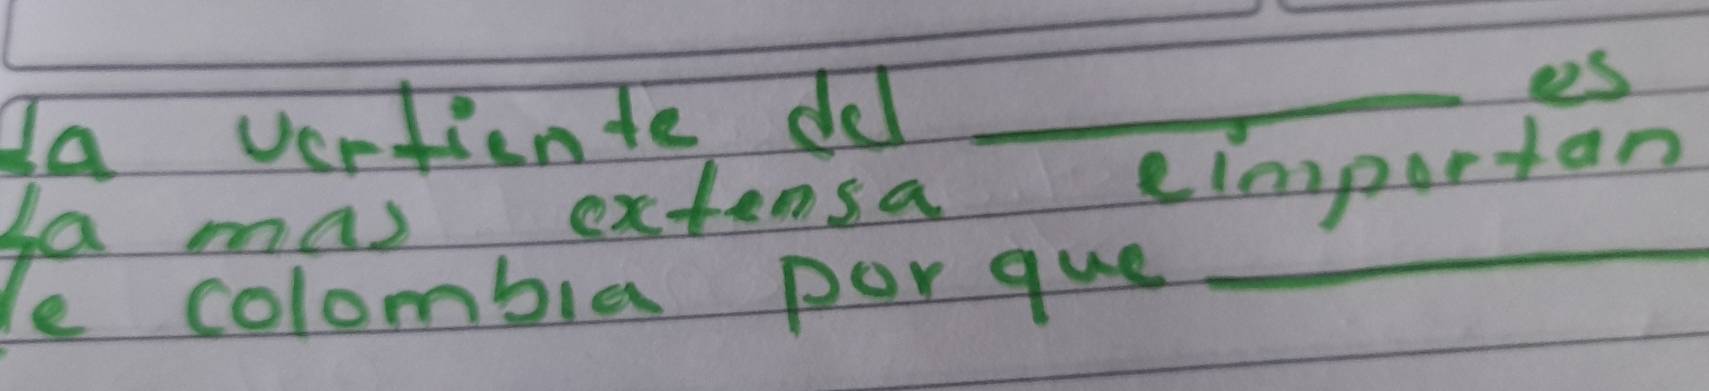 La vertiente del ________ es
La mas extensa e importan
de colombia por que ________